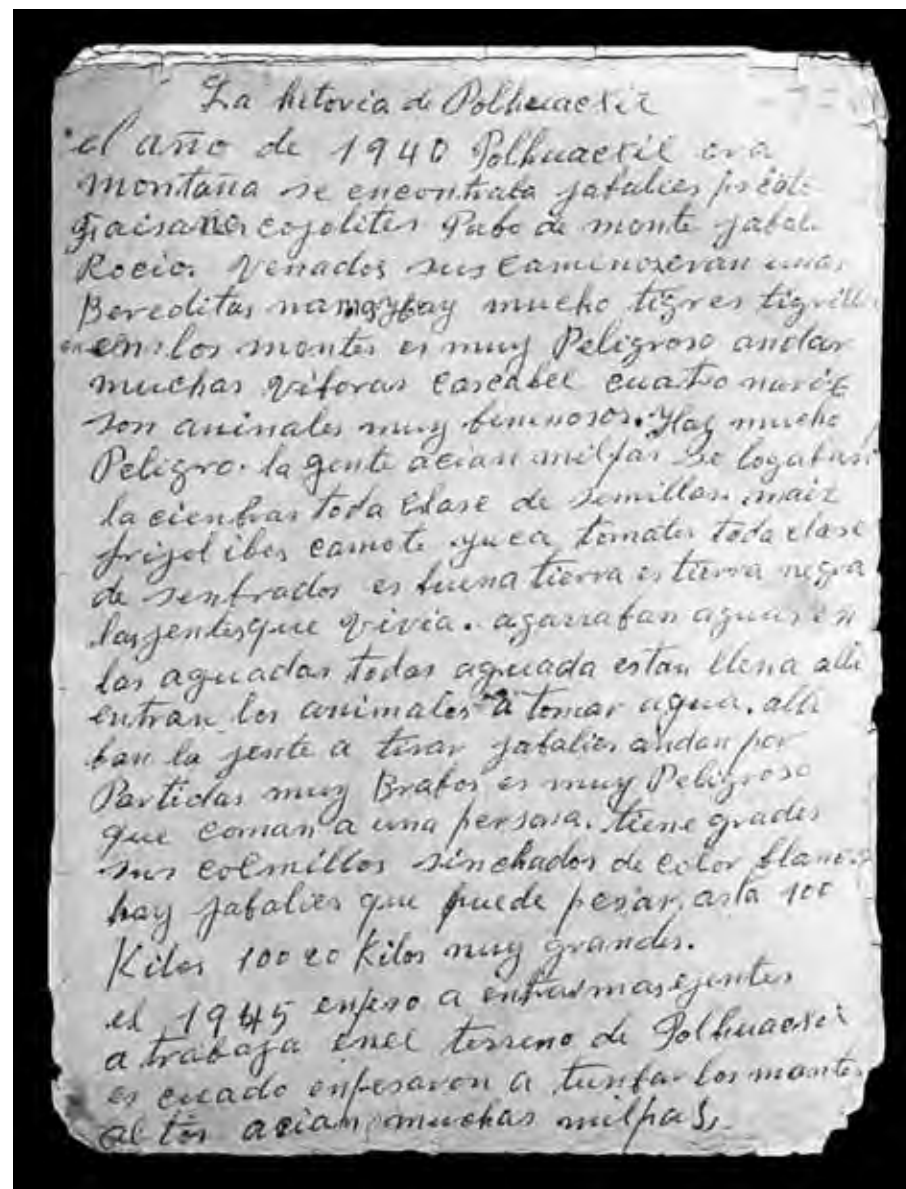 La hitoria de Polhuacxil
el año de 1940 Polhuacxil era
montaña se encontraba jabalies
faisanes cojolites Pabo de monte jabal
Rocio. Venados sus caminos eran unas
Bereditas hay mucho tigres tigrillos
en los montes es muy Peligroso andar
muchas viboras cascabel cuatro nariz
son animales muy beninosos. Hay mucho
Peligro. la gente acian milpas se logaban
la cienbras toda clase de semillas. maiz
frijol ibes camote yuca tomates toda clase
de senbrados es buena tierra es tierra negra
las jentes que vivia. agarraban aguas en
las aguadas todas aguada estan llena alli
entran los animales a tomar agua. alli
ban la jente a tirar jabalies andan por
Partidas muy Brabos es muy Peligroso
que coman a una persona. tiene grades
sus colmillos sinchados de color blanco
hay jabalies que puede pesar asta 100
Kilos 100 20 Kilos muy grandes.
el 1945 enpeso a entrar mas jentes
a trabaja en el terreno de Polhuacxil
es cuado enpesaron a tunbar los montes
altos acian muchas milpas.